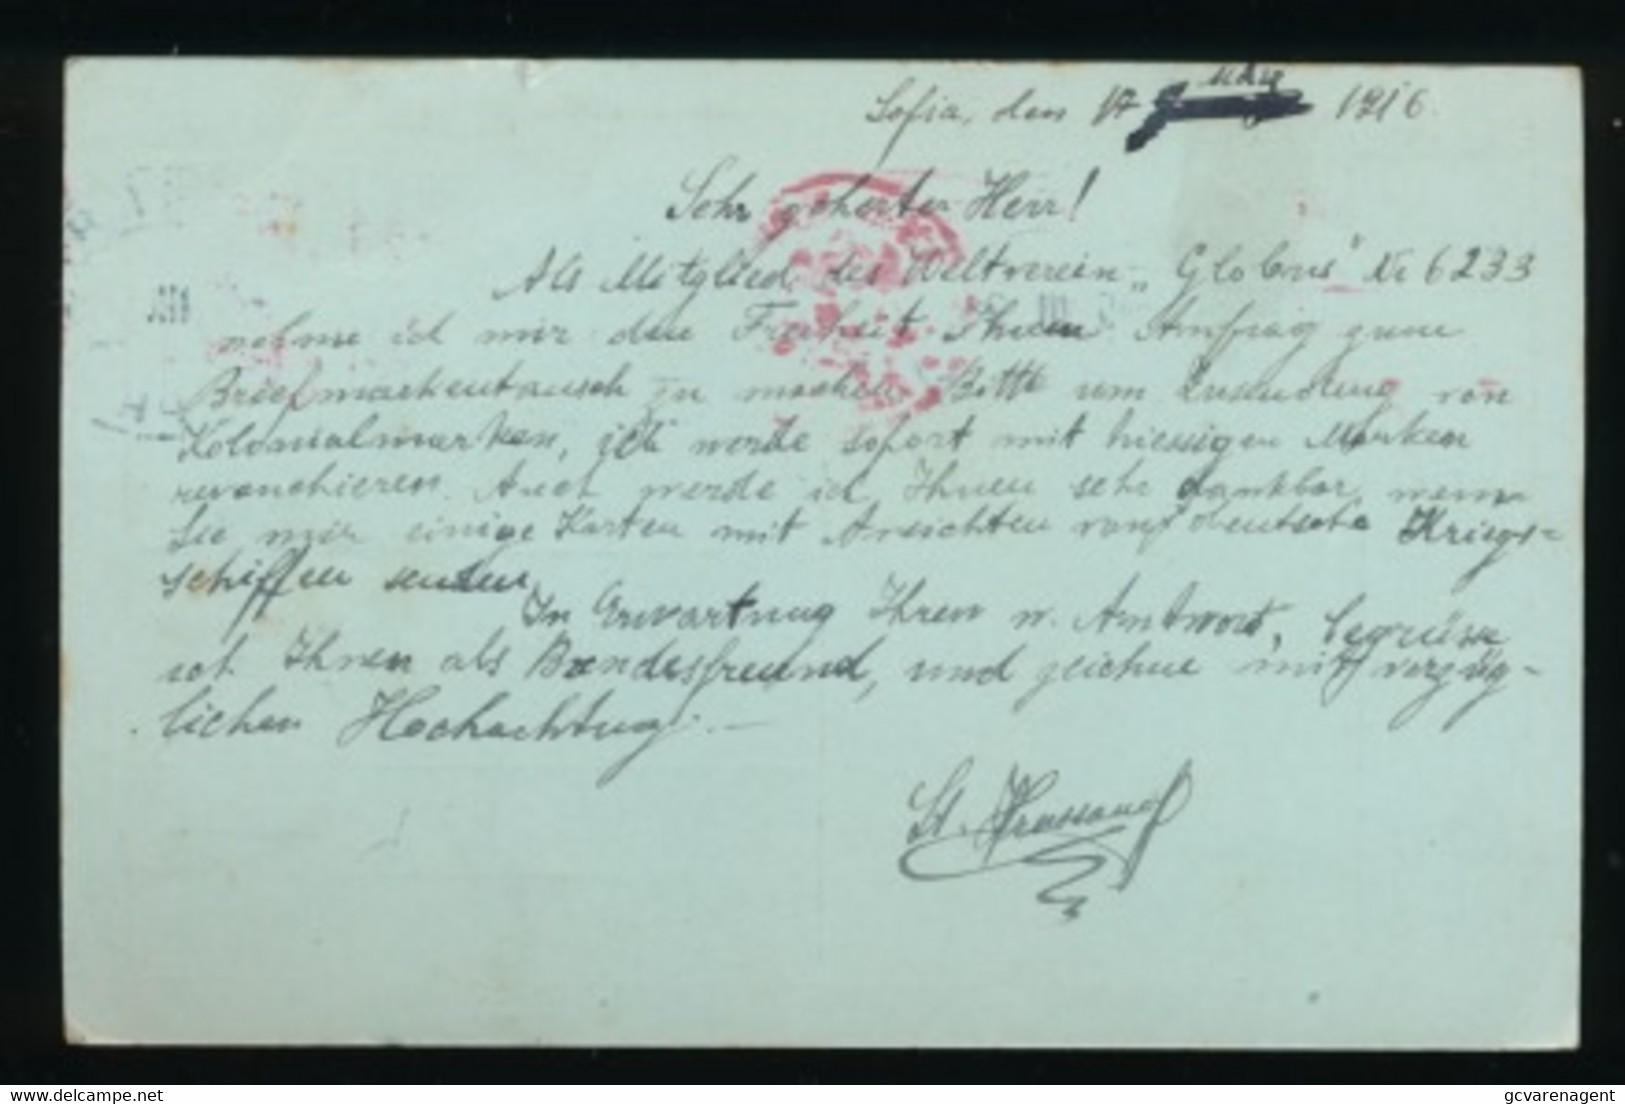 Sofia, den 17 März 1916.
Sehr geherter Herr!
Als Mitglied des Weltverein „Globus" Nr 6233
nehme ich mir den Freiheit Ihnen Anfrag zum
Briefmarkentausch zu machen. Bitte um Zusendung von
Kolonialmarken, ich werde sofort mit hiessigen Marken
revanchieren. Auch werde ich Ihnen sehr dankbar, wenn
Sie mir einige Karten mit Ansichten von deutsche Kriegs-
schiffen senden.
In Erwartung Ihren w. Antwort, begrüsse
ich Ihnen als Bundesfreund, und zeichne mit vorzüg-
lichen Hochachtung.—
St.
Source: www.delcampe.net
gcvarenagent